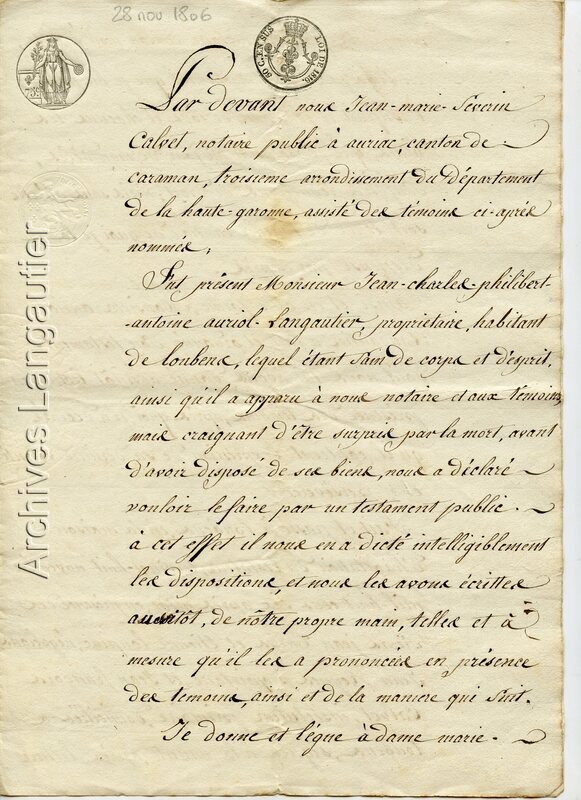 28 nov 1806
80 C. EN SUS LOI DE 1816
75 C
Par devant nous Jean-marie-Séverin
Calvet, notaire public à auriac, canton de
caraman, troisieme arrondissement du département
de la haute-garonne, assisté des témoins ci-après
nommés,
Fut présent Monsieur Jean-charles-philibert-
antoine auriol-Langautier, propriétaire, habitant
de loubens, lequel étant sain de corps et d'esprit,
ainsi qu'il a apparu à nous notaire et aux témoins,
mais craignant d'être surpris par la mort, avant
d'avoir disposé de ses biens, nous a déclaré
vouloir le faire par un testament public.
à cet effet il nous en a dicté intelligiblement
les dispositions, et nous les avons écrittes
aussitôt, de nôtre propre main, telles et à
mesure qu'il les a prononcées en présence
des temoins, ainsi et de la maniere qui suit.
Je donne et lègue à dame marie-
Archives Langautier